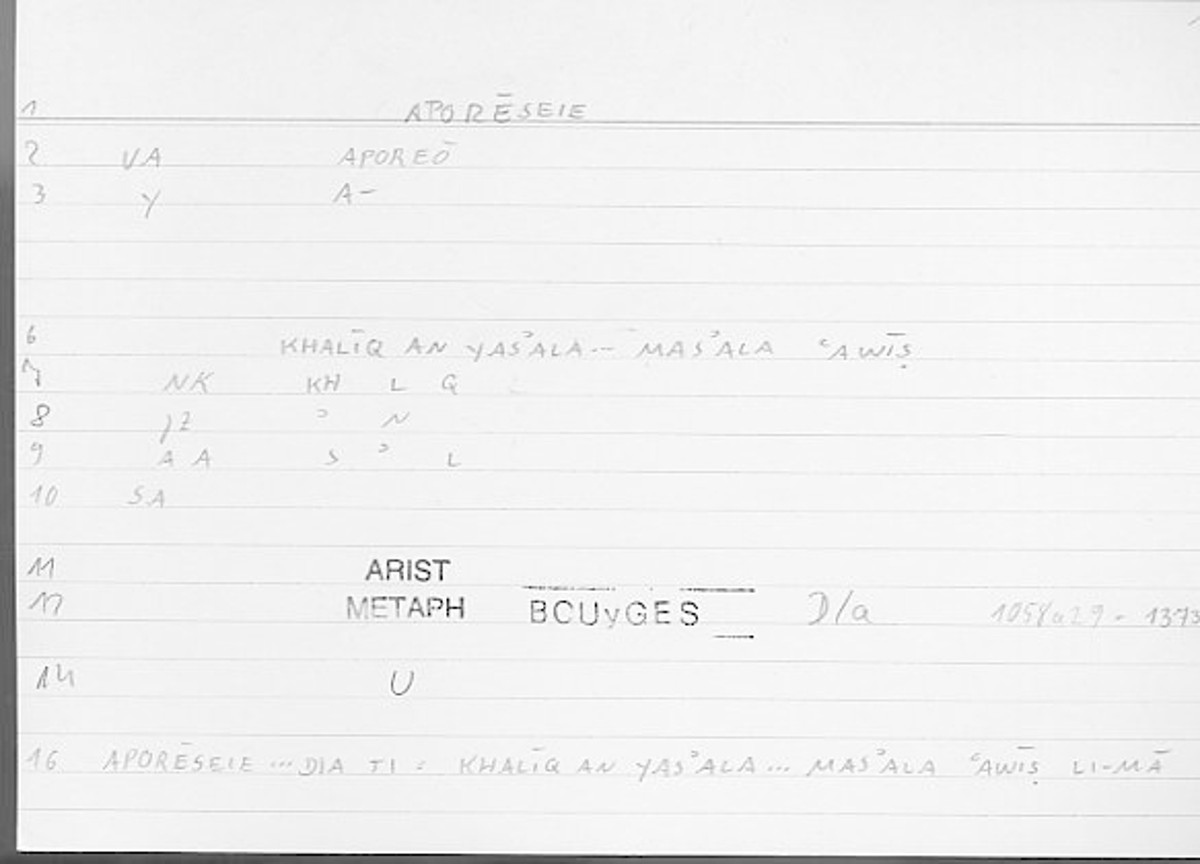 1 APORĒSEIE
2 VA APOREŌ
3 Y A-
6 KHALĪQ AN YASʾALA... MASʾALA ʿAWĪṢ
7 NK KH L Q
8 JZ ʾ N
9 AA S ʾ L
10 SA
11 ARIST
12 METAPH BOUyGES D/a 1058a29 - 1373
14 U
16 APORĒSEIE ... DIA TI : KHALĪQ AN YASʾALA... MASʾALA ʿAWĪṢ LI-MĀ